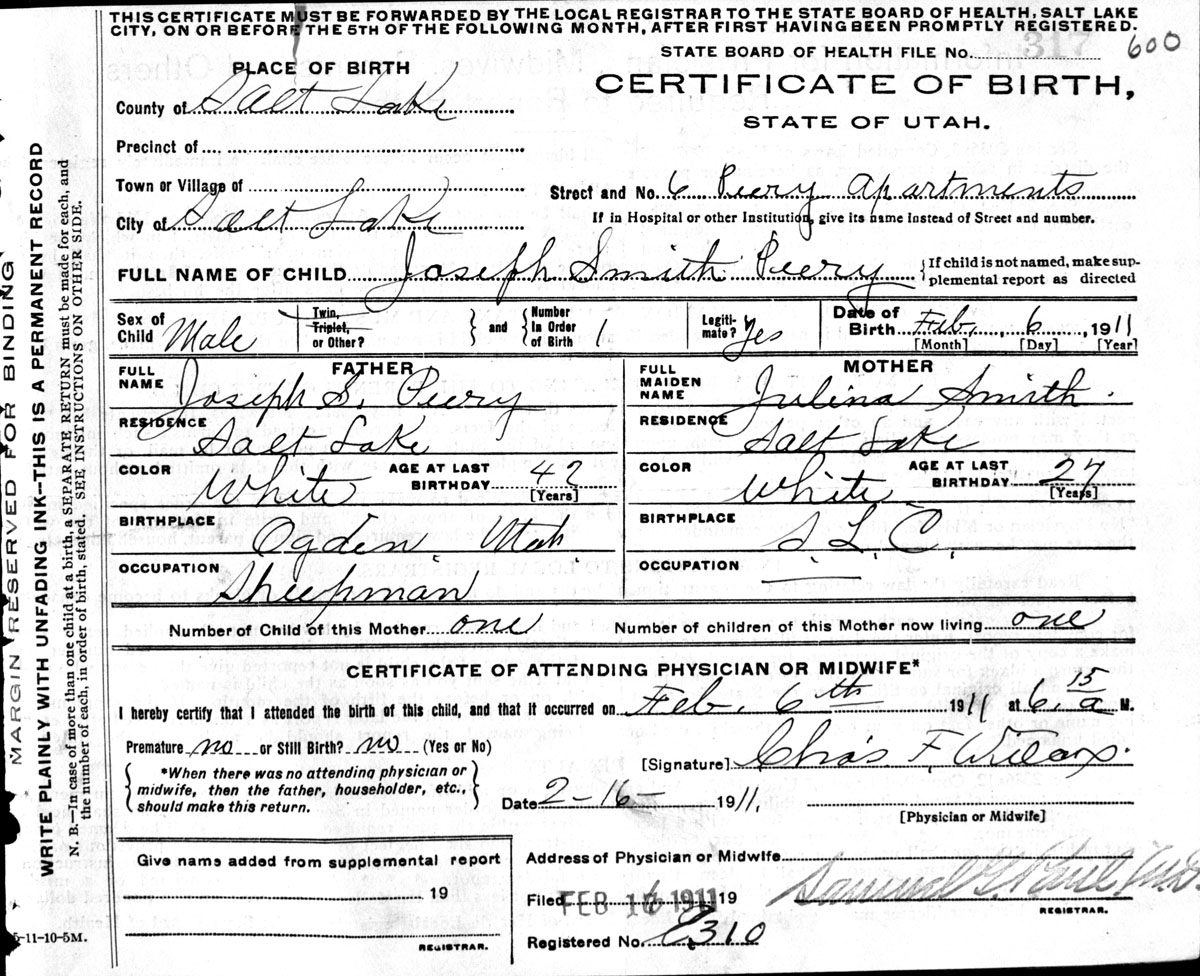 THIS CERTIFICATE MUST BE FORWARDED BY THE LOCAL REGISTRAR TO THE STATE BOARD OF HEALTH, SALT LAKE
CITY, ON OR BEFORE THE 5TH OF THE FOLLOWING MONTH, AFTER FIRST HAVING BEEN PROMPTLY REGISTERED.
STATE BOARD OF HEALTH FILE No. 317 600
PLACE OF BIRTH
CERTIFICATE OF BIRTH,
STATE OF UTAH.
County of Salt Lake
Precinct of
Town or Village of
Street and No. 6 Peery Apartments
City of Salt Lake
If in Hospital or other Institution, give its name instead of Street and number.
FULL NAME OF CHILD Joseph Smith Peery
If child is not named, make sup-
plemental report as directed
Sex of Child Male
Twin, Triplet, or Other?
and
Number In Order of Birth 1
Legiti-mate? Yes
Date of Birth Feb. 6, 1911
[Month] [Day] [Year]
FATHER
FULL NAME Joseph S. Peery
RESIDENCE Salt Lake
COLOR White AGE AT LAST BIRTHDAY 42 [Years]
BIRTHPLACE Ogden Utah
OCCUPATION Sheepman
MOTHER
FULL MAIDEN NAME Julina Smith.
RESIDENCE Salt Lake
COLOR White AGE AT LAST BIRTHDAY 27 [Years]
BIRTHPLACE S. L. C.
OCCUPATION —
Number of Child of this Mother one Number of children of this Mother now living one
CERTIFICATE OF ATTENDING PHYSICIAN OR MIDWIFE*
I hereby certify that I attended the birth of this child, and that it occurred on Feb. 6th 1911 at 6.15 a M.
Premature no or Still Birth? no (Yes or No)
[Signature] Chas F. Wilcox.
*When there was no attending physician or
midwife, then the father, householder, etc.,
should make this return.
Date 2-16- 1911,
[Physician or Midwife]
Give name added from supplemental report
19
REGISTRAR.
Address of Physician or Midwife
Filed FEB 16 1911 19
Samuel G. Paul, M.D.
REGISTRAR.
Registered No. C310
MARGIN RESERVED FOR BINDING
WRITE PLAINLY WITH UNFADING INK--THIS IS A PERMANENT RECORD
N. B.—In case of more than one child at a birth, a SEPARATE RETURN must be made for each, and
the number of each, in order of birth, stated. SEE INSTRUCTIONS ON OTHER SIDE.
5-11-10-5M.